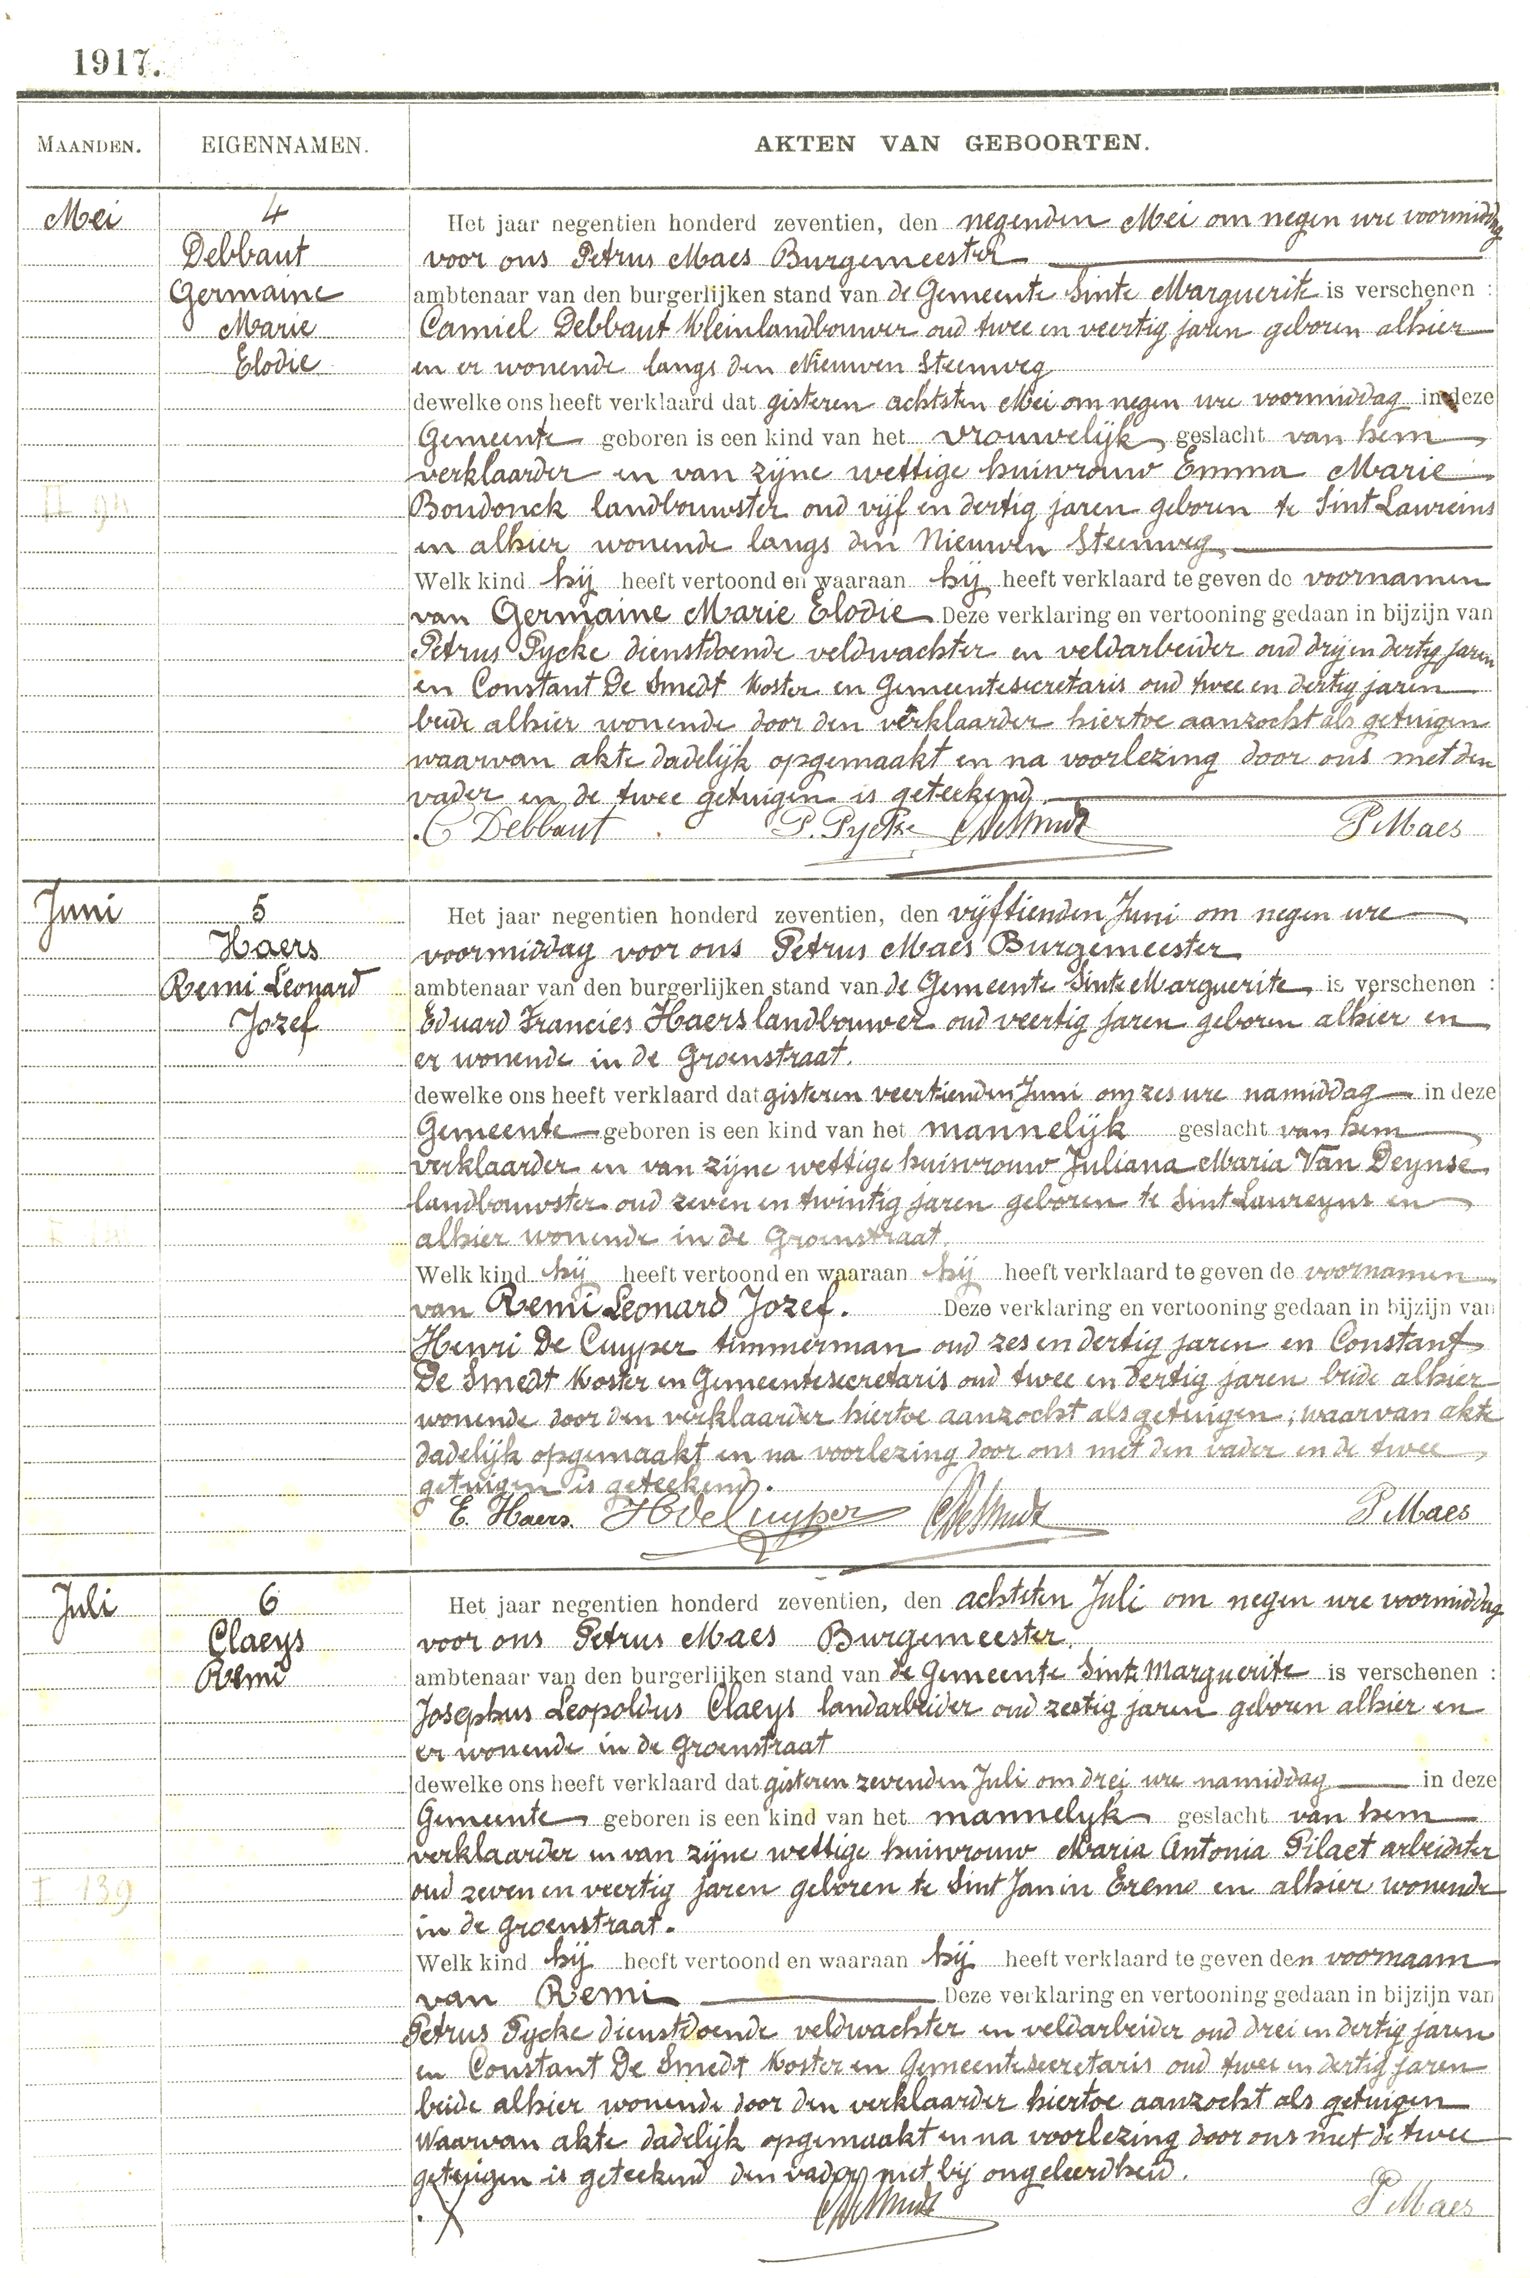 1917.
MAANDEN.
EIGENNAMEN.
AKTEN VAN GEBOORTEN.
Mei
4
Debbaut
Germaine
Marie
Elodie
Het jaar negentien honderd zeventien, den negenden Mei om negen ure voormiddag
voor ons Petrus Maes Burgemeester
ambtenaar van den burgerlijken stand van de Gemeente Sinte Marguerite is verschenen :
Camiel Debbaut Kleinlandbouwer oud twee en veertig jaren geboren alhier
en er wonende langs den Nieuwen Steenweg
dewelke ons heeft verklaard dat gisteren achtsten Mei om negen ure voormiddag in deze
Gemeente geboren is een kind van het vrouwelijk geslacht van hem
verklaarder en van zijne wettige huisvrouw Emma Marie
Boudonck landbouwster oud vijf en dertig jaren geboren te Sint Laureins
en alhier wonende langs den Nieuwen Steenweg
Welk kind hij heeft vertoond en waaraan hij heeft verklaard te geven de voornamen
van Germaine Marie Elodie Deze verklaring en vertooning gedaan in bijzijn van
Petrus Pycke dienstdoende veldwachter en veldarbeider oud drij en dertig jaren
en Constant De Smedt Koster en Gemeentesecretaris oud twee en dertig jaren
beide alhier wonende door den verklaarder hiertoe aanzocht als getuigen
waarvan akte dadelijk opgemaakt en na voorlezing door ons met den
vader en de twee getuigen is geteekend
C Debbaut P. Pycke CDeSmedt P Maes
II 94
Juni
5
Haers
Remi Leonard
Jozef
Het jaar negentien honderd zeventien, den vijftienden Juni om negen ure
voormiddag voor ons Petrus Maes Burgemeester
ambtenaar van den burgerlijken stand van de Gemeente Sinte Marguerite is verschenen :
Eduard Francies Haers landbouwer oud veertig jaren geboren alhier en
er wonende in de Groenstraat.
dewelke ons heeft verklaard dat gisteren veertienden Juni om zes ure namiddag in deze
Gemeente geboren is een kind van het mannelijk geslacht van hem
verklaarder en van zijne wettige huisvrouw Juliana Maria Van Deynse
landbouwster oud zeven en twintig jaren geboren te Sint Laureyns en
alhier wonende in de Groenstraat.
Welk kind hij heeft vertoond en waaraan hij heeft verklaard te geven de voornamen
van Remi Leonard Jozef. Deze verklaring en vertooning gedaan in bijzijn van
Henri De Cuyper timmerman oud zes en dertig jaren en Constant
De Smedt Koster en Gemeentesecretaris oud twee en dertig jaren beide alhier
wonende door den verklaarder hiertoe aanzocht als getuigen, waarvan akte
dadelijk opgemaakt en na voorlezing door ons met den vader en de twee
getuigen is geteekend.
E. Haers. H de Cuyper CDeSmedt P Maes
Juli
6
Claeys
Remi
Het jaar negentien honderd zeventien, den achtsten Juli om negen ure voormiddag
voor ons Petrus Maes Burgemeester.
ambtenaar van den burgerlijken stand van de Gemeente Sinte Marguerite is verschenen :
Josephus Leopoldus Claeys landarbeider oud zestig jaren geboren alhier en
er wonende in de Groenstraat
dewelke ons heeft verklaard dat gisteren zevenden Juli om drei ure namiddag in deze
Gemeente geboren is een kind van het mannelyk geslacht van hem
verklaarder en van zijne wettige huisvrouw Maria Antonia Pilaet arbeidster
oud zeven en veertig jaren geboren te Sint Jan in Eremo en alhier wonende
in de Groenstraat.
Welk kind hij heeft vertoond en waaraan hij heeft verklaard te geven den voornaam
van Remi Deze verklaring en vertooning gedaan in bijzijn van
Petrus Pycke dienstdoende veldwachter en veldarbeider oud drei en dertig jaren
en Constant De Smedt Koster en Gemeentesecretaris oud twee en dertig jaren
beide alhier wonende door den verklaarder hiertoe aanzocht als getuigen
Waarvan akte dadelijk opgemaakt en na voorlezing door ons met de twee
getuigen is geteekend den vader niet bij ongeleerdheid.
X CDeSmedt P Maes
I 139